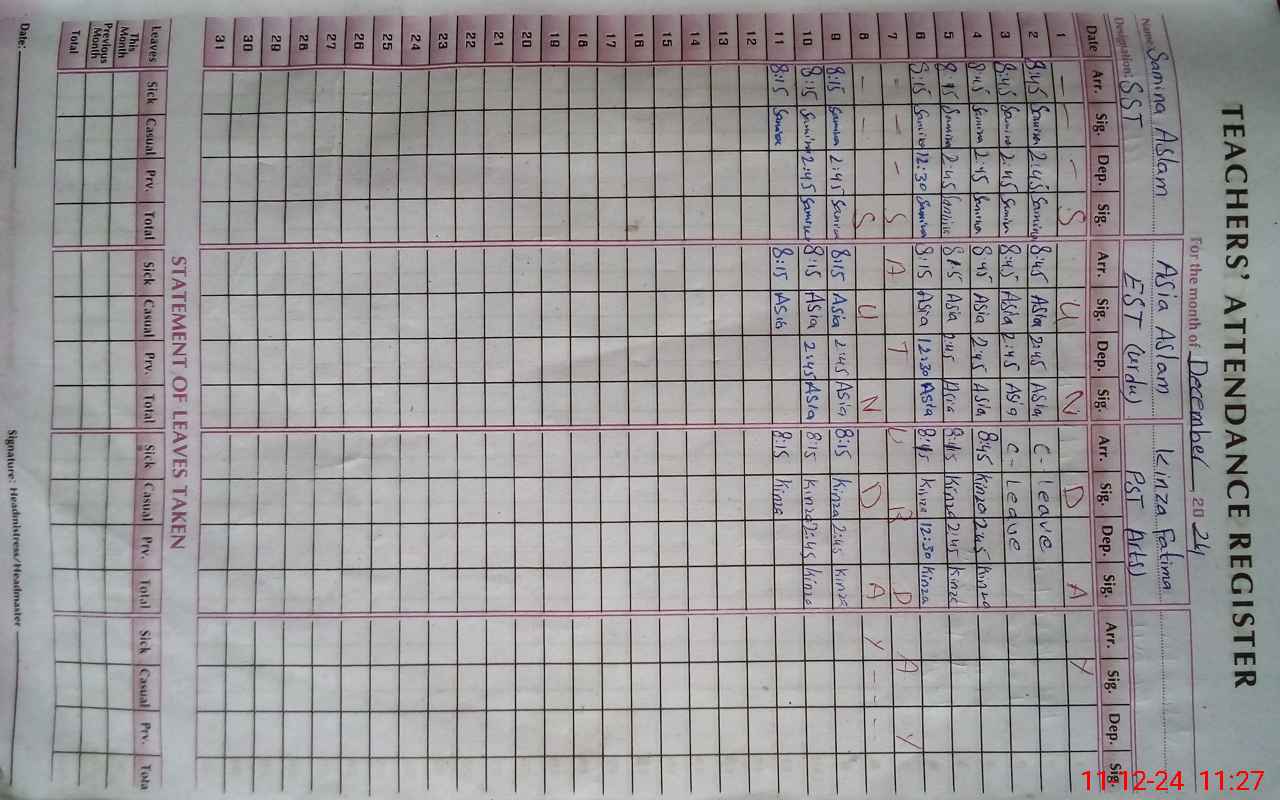 TEACHERS' ATTENDANCE REGISTER
For the month of December 2024
Name: Samina Aslam Asia Aslam Kinza Fatima
Designation: SST EST (urdu) PST Arts)
Date Arr. Sig. Dep. Sig. Arr. Sig. Dep. Sig. Arr. Sig. Dep. Sig. Arr. Sig. Dep. Sig.
1 — — - S U N D A Y
2 8:45 Samina 2:45 Samina 8:45 Asia 2:45 Asia C- Leave
3 8:45 Samina 2:45 Samina 8:45 Asia 2:45 Asia C- Leave
4 8:45 Samina 2:45 Samina 8:45 Asia 2:45 Asia 8:45 Kinza 2:45 Kinza
5 8:45 Samina 2:45 Samina 8:15 Asia 2:45 Asia 8:15 Kinza 2:45 Kinza
6 8:15 Samina 12:30 Samina 8:15 Asia 12:30 Asia 8:15 Kinza 12:30 Kinza
7 - - - S A T U R D A Y
8 - - S U N D A Y - - -
9 8:15 Samina 2:45 Samina 8:15 Asia 2:45 Asia 8:15 Kinza 2:45 Kinza
10 8:15 Samina 2:45 Samina 8:15 Asia 2:45 Asia 8:15 Kinza 2:45 Kinza
11 8:15 Samina 8:15 Asia 8:15 Kinza
12
13
14
15
16
17
18
19
20
21
22
23
24
25
26
27
28
29
30
31
STATEMENT OF LEAVES TAKEN
Leaves Sick Casual Prv. Total Sick Casual Prv. Total Sick Casual Prv. Total Sick Casual Prv. Tota
This Month
Previous Month
Total
Date: Signature: Headmistress/Headmaster
11-12-24 11:27